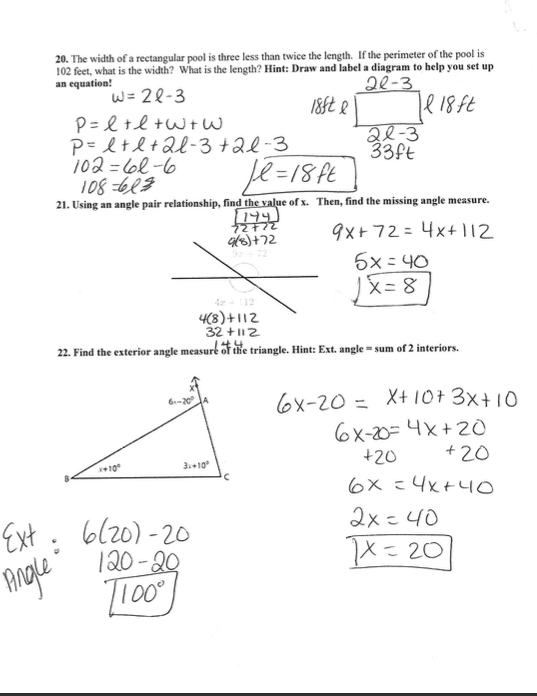 20. The width of a rectangular pool is three less than twice the length. If the perimeter of the pool is
102 feet, what is the width? What is the length? Hint: Draw and label a diagram to help you set up
an equation!
w = 2l-3
2l-3
18ft l
l 18ft
P = l+l+w+w
2l-3
P = l+l+2l-3+2l-3
33ft
102 = 6l-6
l=18ft
108=6l
21. Using an angle pair relationship, find the value of x. Then, find the missing angle measure.
144
72+72
9(8)+72
9x + 72
9x+72 = 4x+112
5x = 40
x = 8
4x + 112
4(8)+112
32+112
144
22. Find the exterior angle measure of the triangle. Hint: Ext. angle = sum of 2 interiors.
X
6x-20° A
x+10°
3x+10°
B
C
6x-20 = x+10+3x+10
6x-20= 4x+20
+20 +20
6x = 4x+40
2x = 40
x = 20
Ext Angle:
6(20)-20
120-20
100°